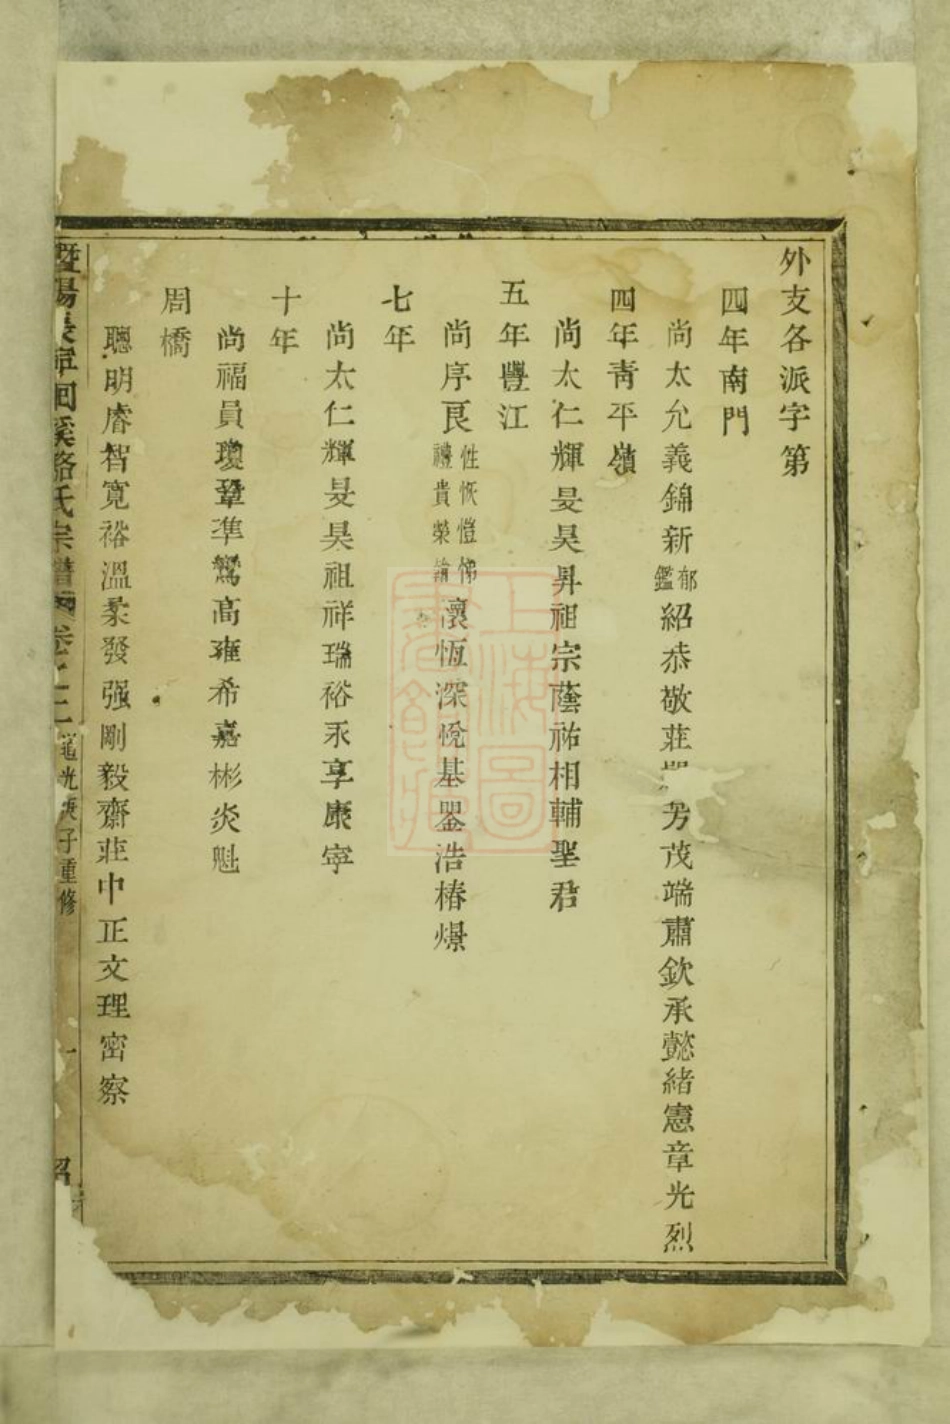 外支各派字第
四年南門
尚太允義錦新郁鑑紹恭敬莊芳茂端肅欽承懿緒憲章光烈
四年靑平嶺
尚太仁輝旻昊昇祖宗蔭祐相輔聖君
五年豐江
尚序良性恢愷悌禮貴榮懷恆深悅基㽞浩椿㷡
七年
尚太仁輝旻昊祖祥瑞裕永享康寧
十年
尚福員瓊鞏準鸞高雍希嘉彬炎魁
周橋
聰明睿智寬裕溫柔發强剛毅齋莊中正文理密察
暨陽長寧回溪駱氏宗譜 卷 光庚子重修
上海圖書館藏